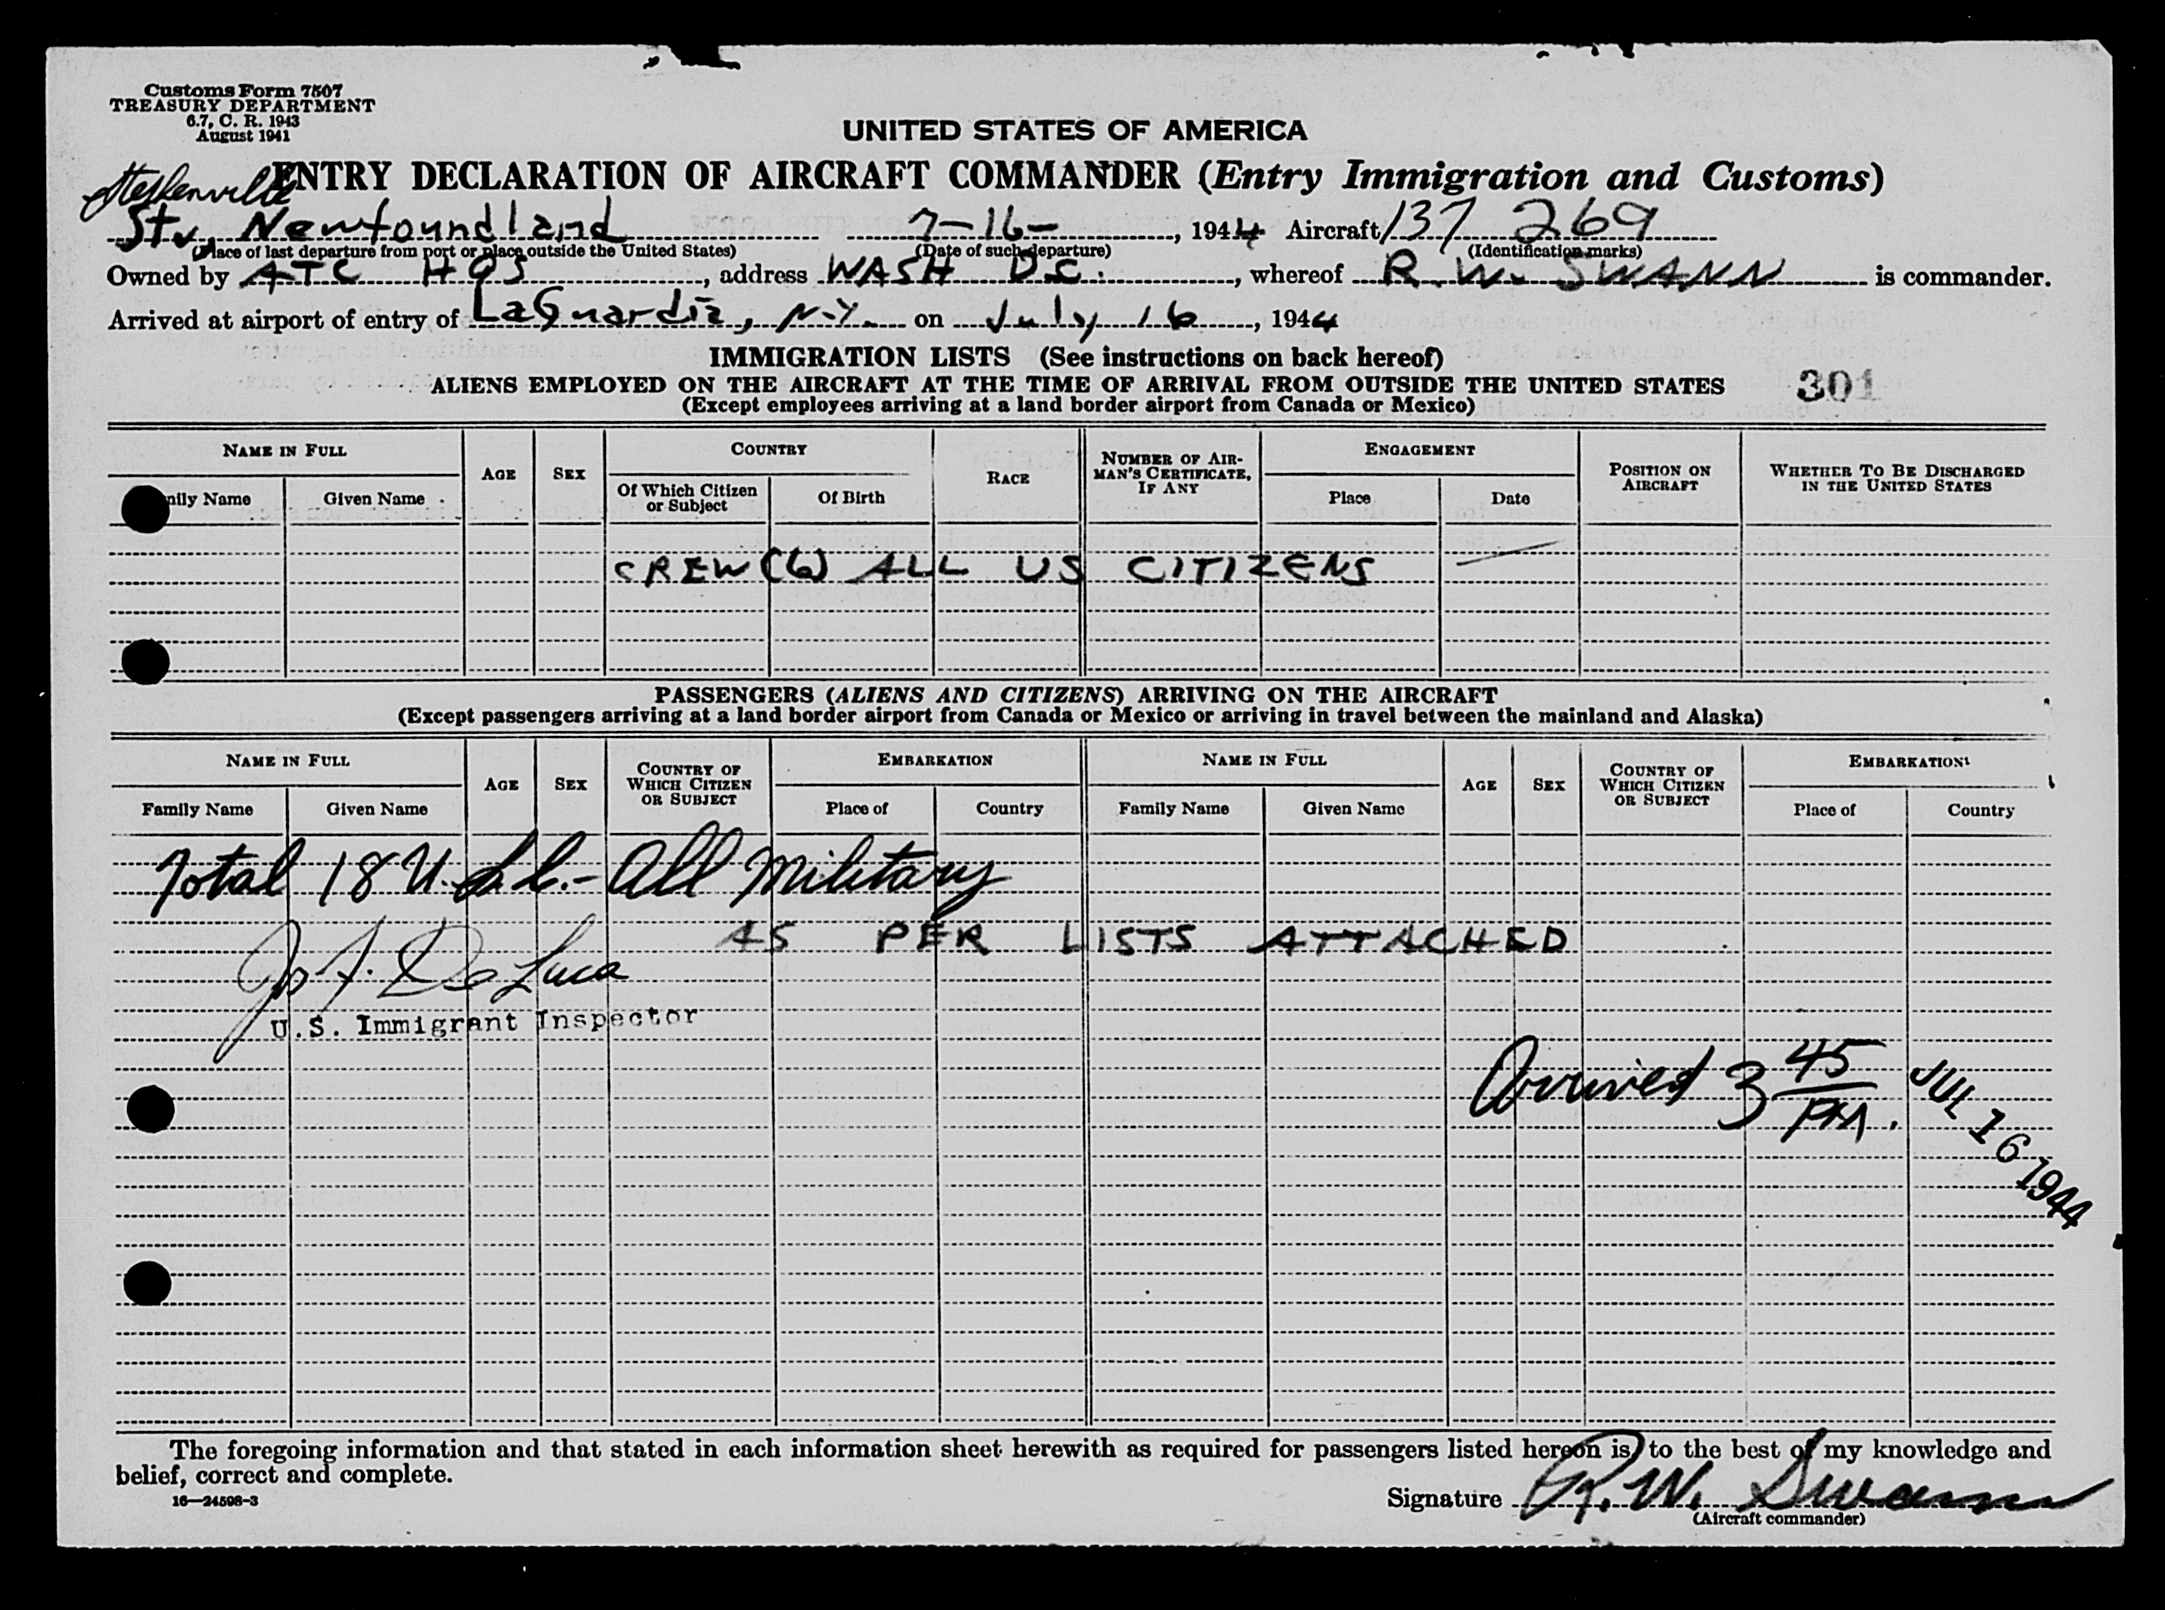 Customs Form 7507
TREASURY DEPARTMENT
6.7, C. R. 1943
August 1941
UNITED STATES OF AMERICA
ENTRY DECLARATION OF AIRCRAFT COMMANDER (Entry Immigration and Customs)
Stephenville
Stv, Newfoundland 7-16-, 1944 Aircraft 137 269
(Place of last departure from port or place outside the United States) (Date of such departure) (Identification marks)
Owned by ATC HQS, address WASH D.C., whereof R. W. SWANN is commander.
Arrived at airport of entry of LaGuardia, N.Y. on July 16, 1944
IMMIGRATION LISTS (See instructions on back hereof)
ALIENS EMPLOYED ON THE AIRCRAFT AT THE TIME OF ARRIVAL FROM OUTSIDE THE UNITED STATES 301
(Except employees arriving at a land border airport from Canada or Mexico)
NAME IN FULL AGE SEX COUNTRY RACE NUMBER OF AIR-MAN'S CERTIFICATE, IF ANY ENGAGEMENT POSITION ON AIRCRAFT WHETHER TO BE DISCHARGED IN THE UNITED STATES
mily Name Given Name Of Which Citizen or Subject Of Birth Place Date
CREW (6) ALL US CITIZENS —
PASSENGERS (ALIENS AND CITIZENS) ARRIVING ON THE AIRCRAFT
(Except passengers arriving at a land border airport from Canada or Mexico or arriving in travel between the mainland and Alaska)
NAME IN FULL AGE SEX COUNTRY OF WHICH CITIZEN OR SUBJECT EMBARKATION NAME IN FULL AGE SEX COUNTRY OF WHICH CITIZEN OR SUBJECT EMBARKATION
Family Name Given Name Place of Country Family Name Given Name Place of Country
Total 18 U.S.C. - All Military
AS PER LISTS ATTACHED
Jos. F. De Luca
U.S. Immigrant Inspector
Arrived 3 45 PM. JUL 16 1944
The foregoing information and that stated in each information sheet herewith as required for passengers listed hereon is, to the best of my knowledge and
belief, correct and complete.
16—24598-3
Signature R. W. Swann
(Aircraft commander)